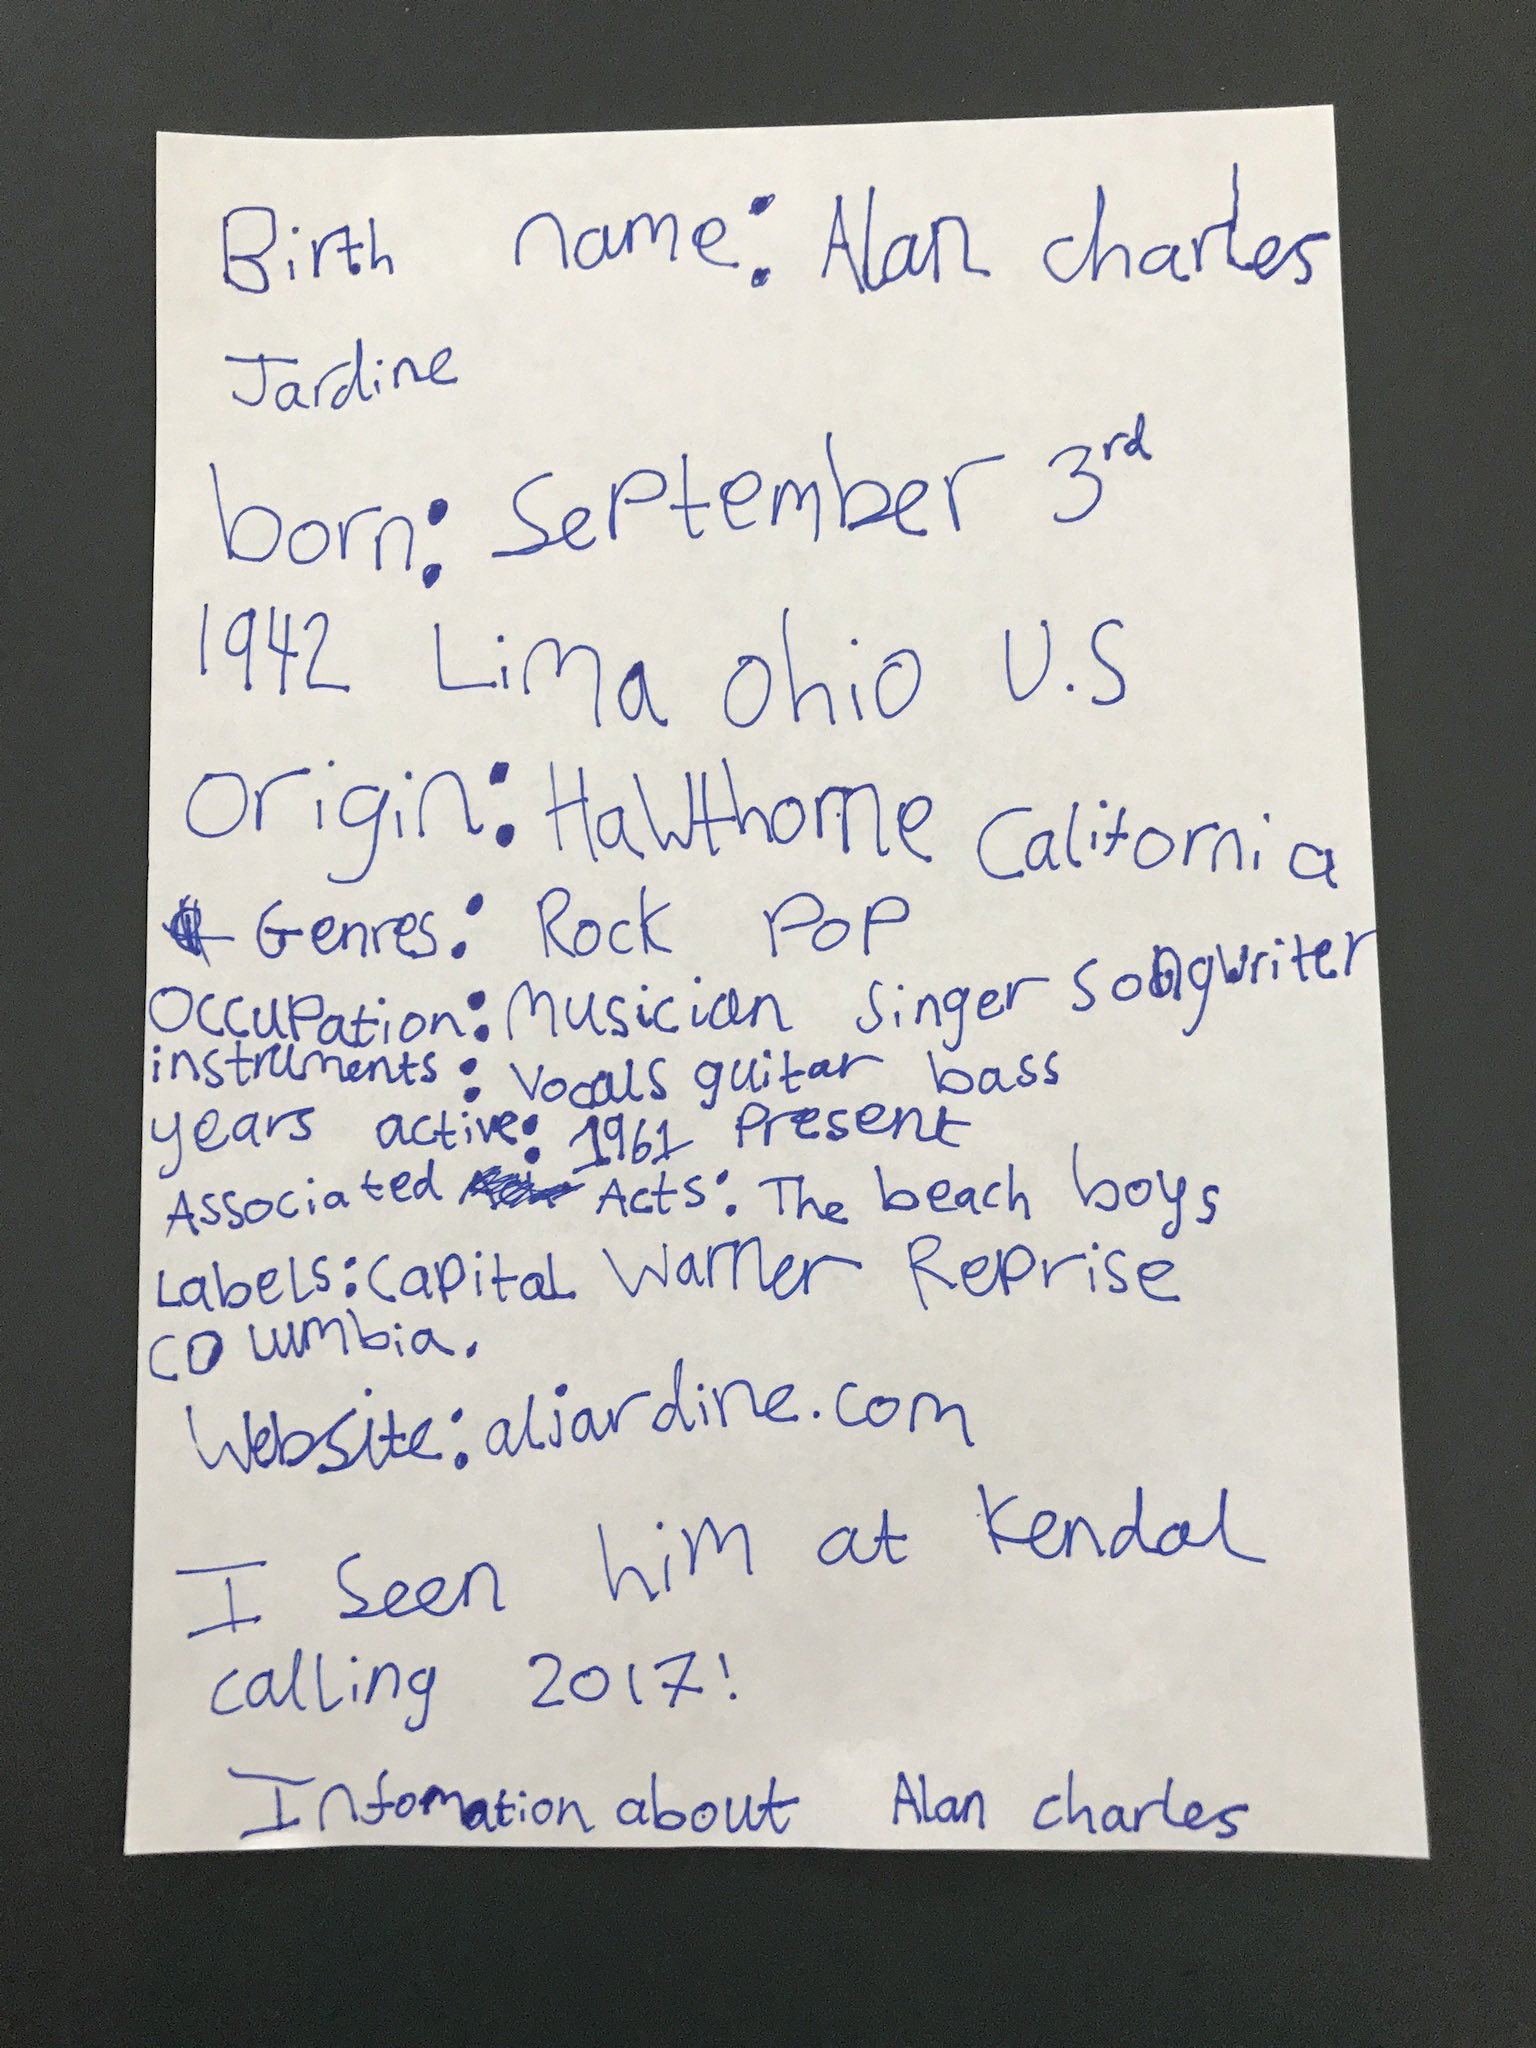 Birth name: Alan charles
Jardine
born: September 3rd
1942 Lima Ohio U.S
origin: Hawthorne California
Genres: Rock Pop
Occupation: Musician Singer Songwriter
instruments: Vocals guitar bass
years active: 1961 Present
Associated Acts: The beach boys
Labels: Capital Warner Reprise
Columbia.
Website: aljardine.com
I seen him at Kendal
calling 2017!
Infomation about Alan charles